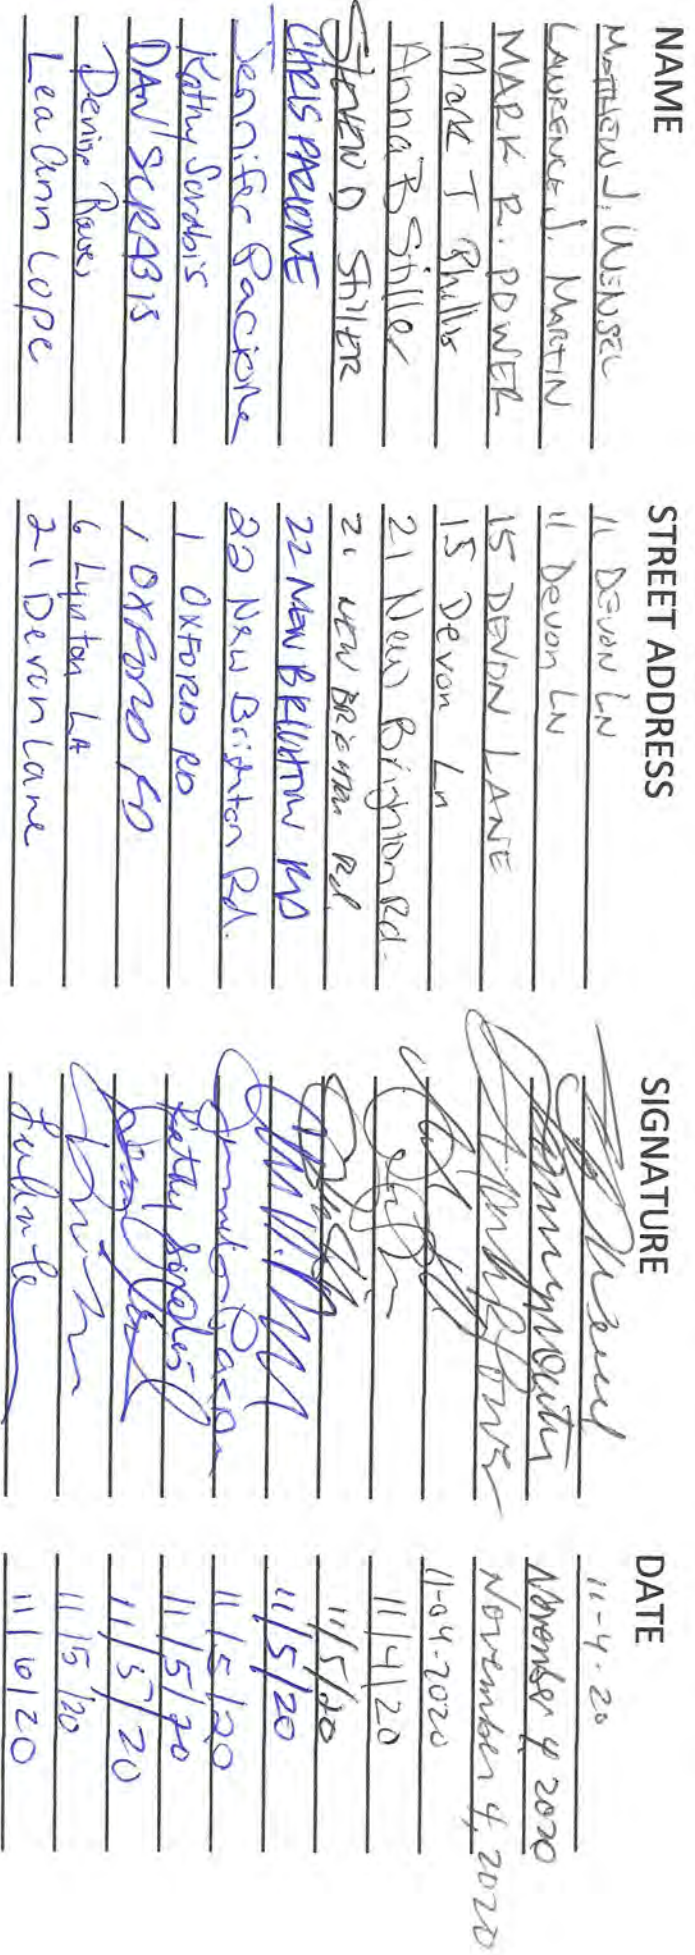 NAME STREET ADDRESS SIGNATURE DATE
MATTHEW J. WENSEL 11 DEVON LN 11-4-20
LAURENCE J. MARTIN 11 Devon LN November 4 2020
MARK R. POWER 15 DEVON LANE November 4, 2020
Mark T Phillis 15 Devon Ln 11-04-2020
Anna B Stiller 21 New Brighton Rd. 11/4/20
STEVEN D STILLER 21 NEW BRIGHTON Rd. 11/5/20
CHRIS PACIONE 22 NEW BRIGHTON RD 11/5/20
Jennifer Pacione 22 New Brighton Rd. Jennifer Pacion 11/5/20
Kathy Scrabis 1 OXFORD RD Kathy Scrabis 11/5/20
DAN SCRABIS 1 OXFORD RD 11/5/20
Denise 6 Lynton LA 11/5/20
Lea Ann Cope 21 Devon Lane 11/6/20